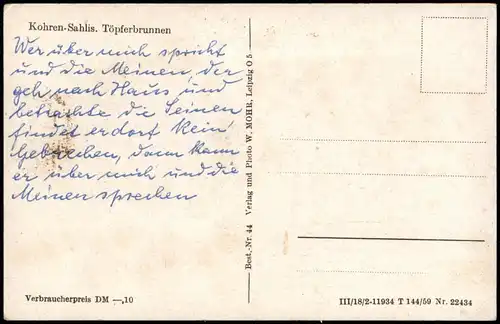 Kohren-Sahlis. Töpferbrunnen
Wer über mich spricht
und die Meinen, der
geh nach Haus und
betrachte die Seinen
findet er dort kein
Gebrechen, dann kann
er über mich und die
Meinen sprechen
Verbraucherpreis DM —,10
Best.-Nr. 44 Verlag und Photo W. MOHR, Leipzig O 5
III/18/2-11934 T 144/59 Nr. 22434